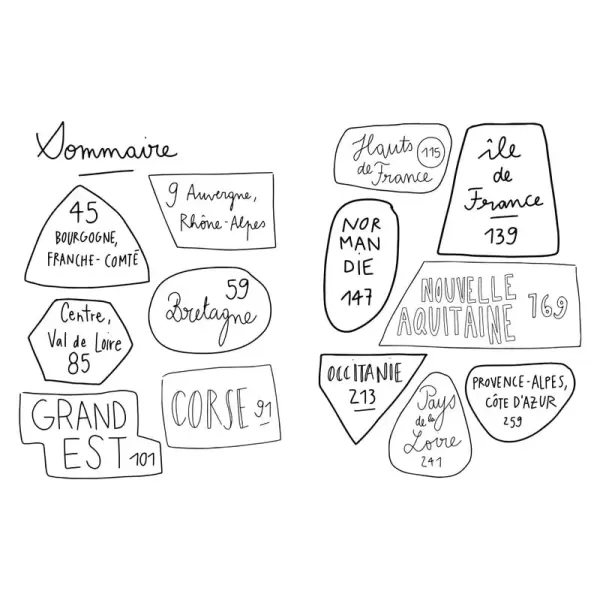 Sommaire
45
BOURGOGNE,
FRANCHE-COMTÉ
9 Auvergne,
Rhône-Alpes
Centre,
Val de Loire
85
59
Bretagne
GRAND
EST 101
CORSE 91
Hauts
de France
115
île
de
France
139
NOR
MAN
DIE
147
NOUVELLE
AQUITAINE
169
OCCITANIE
213
Pays
de la
Loire
241
PROVENCE-ALPES,
CÔTE D'AZUR
259